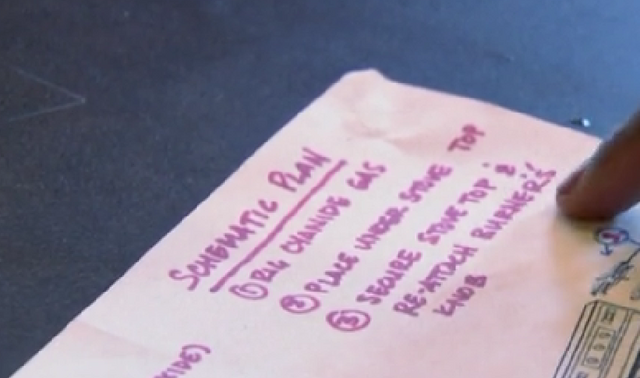 SCHEMATIC PLAN
① RIG CYANIDE GAS
② PLACE UNDER STOVE TOP
③ SECURE STOVE TOP &
RE-ATTACH BURNERS
KNOB
XIDE)